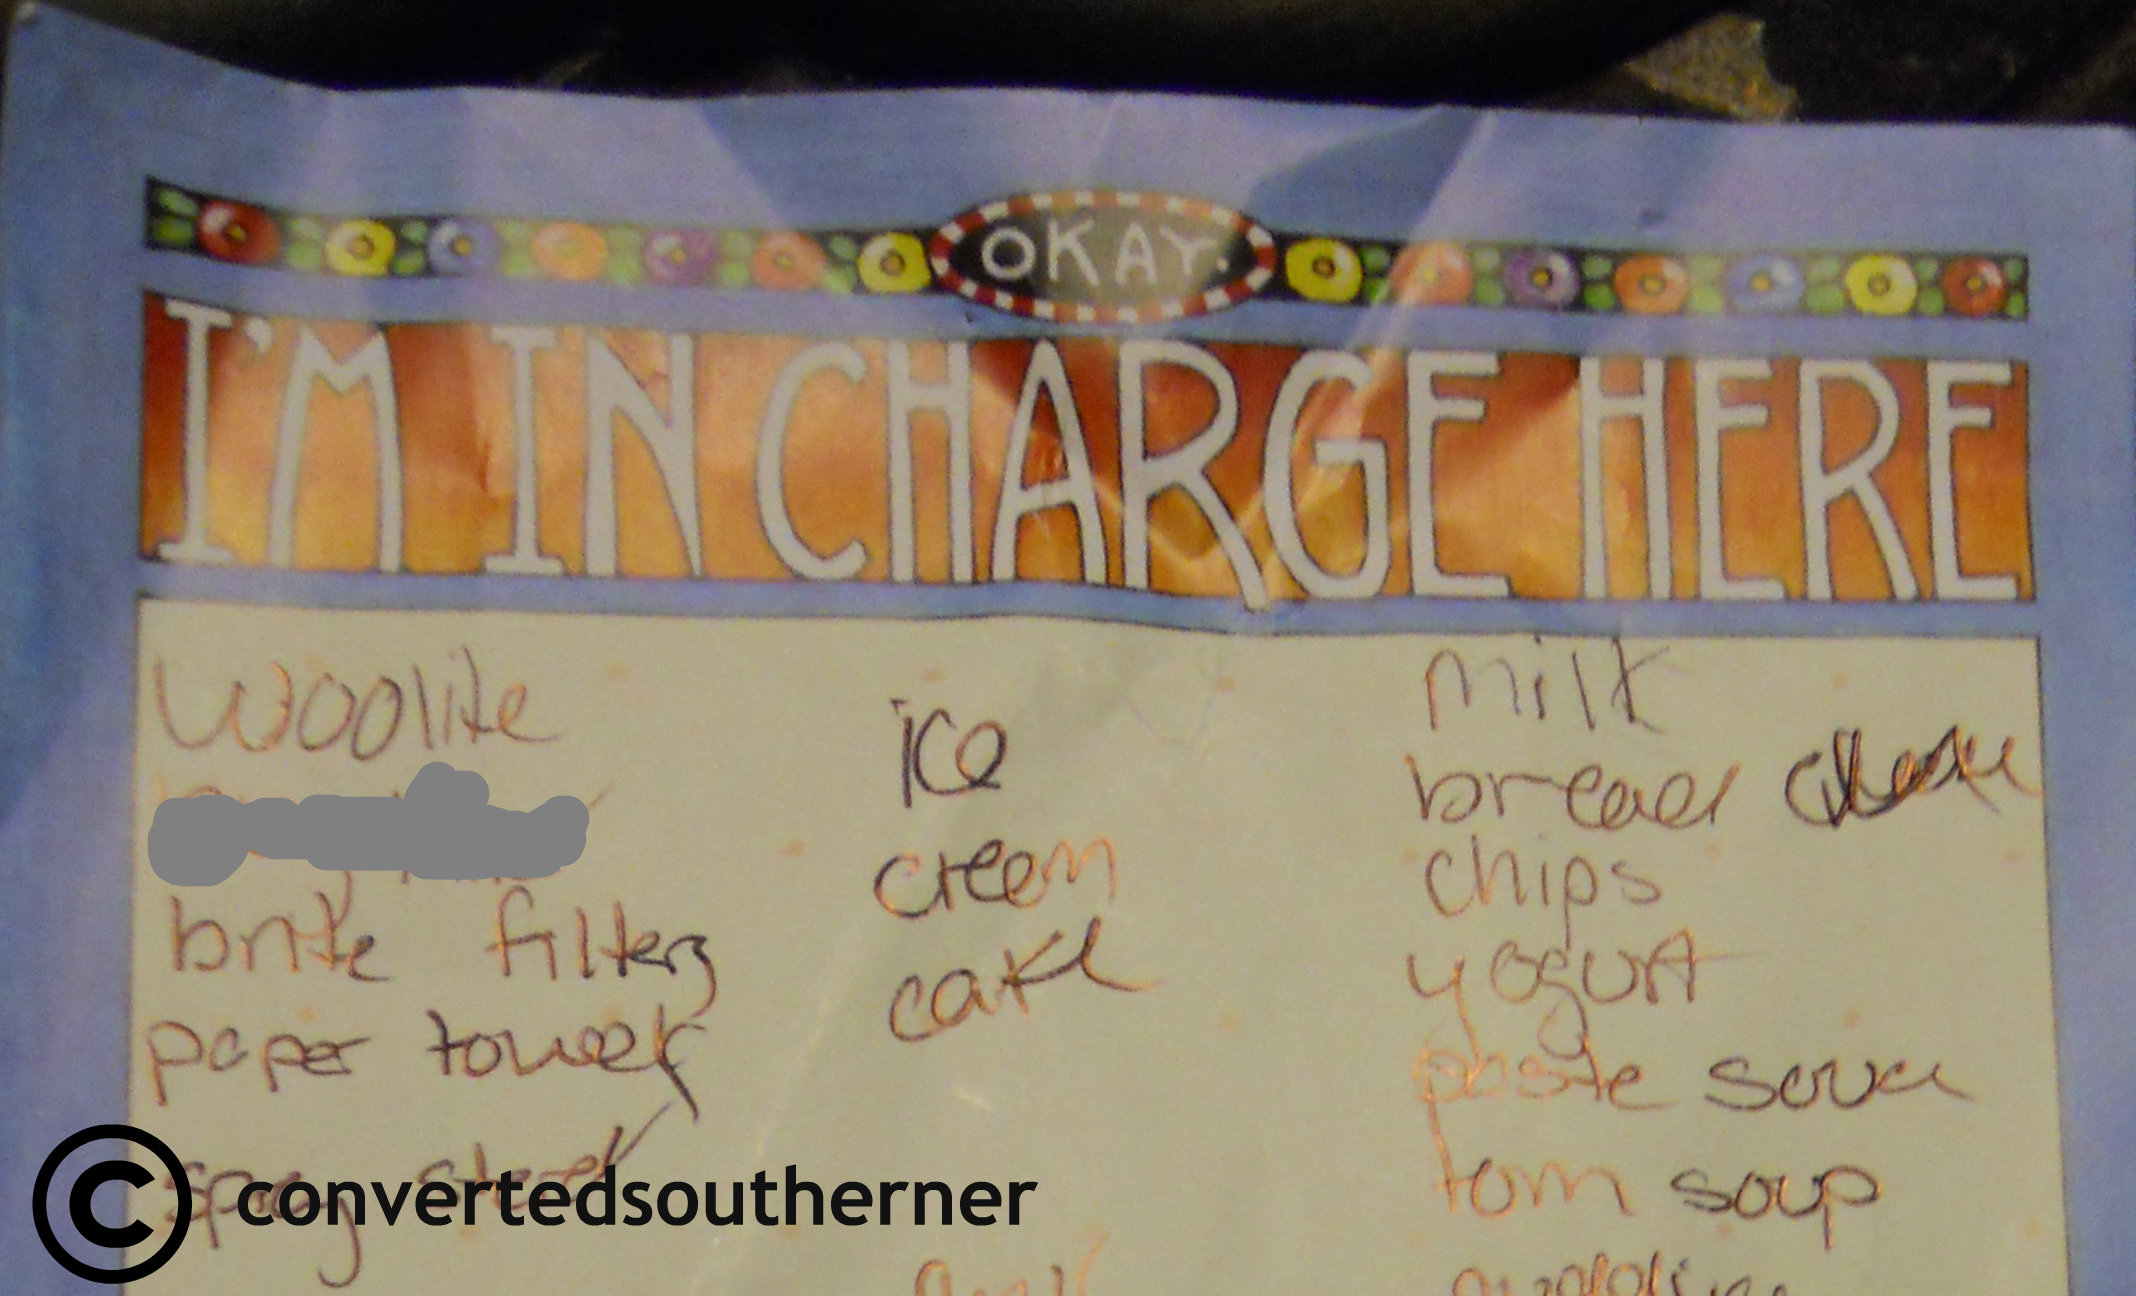 OKAY.
I'M IN CHARGE HERE
woolite
brite filters
paper towel
spray starch
ice
cream
cake
milk
bread cheese
chips
yogurt
paste sauce
tom soup
© convertedsoutherner